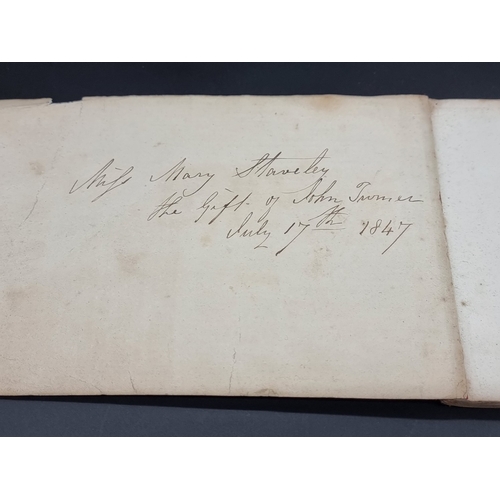 Miss Mary Staveley
the Gift of John Turner
July 17th 1847